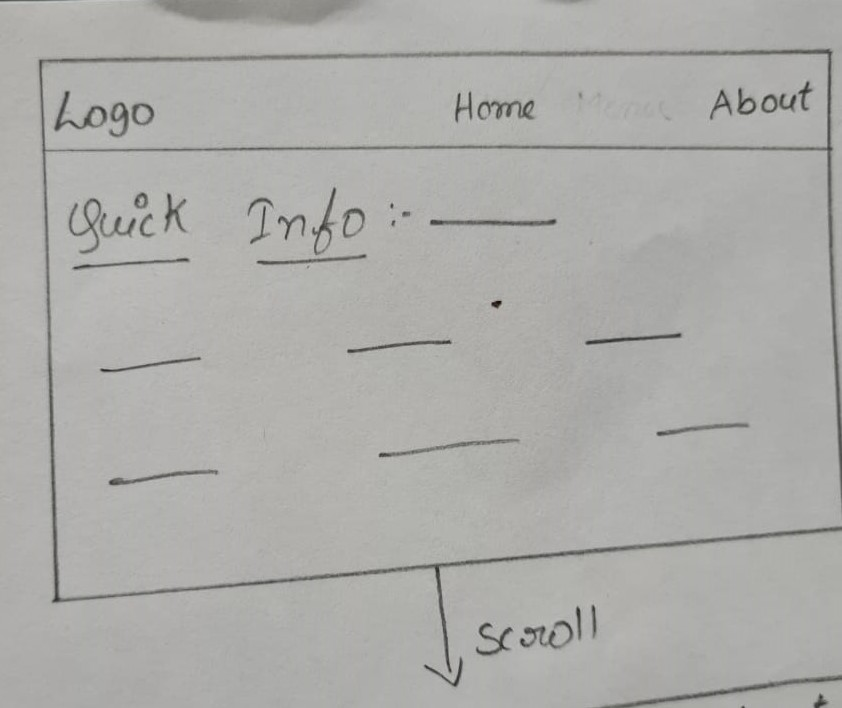 Logo Home About
Quick Info :-
Scroll